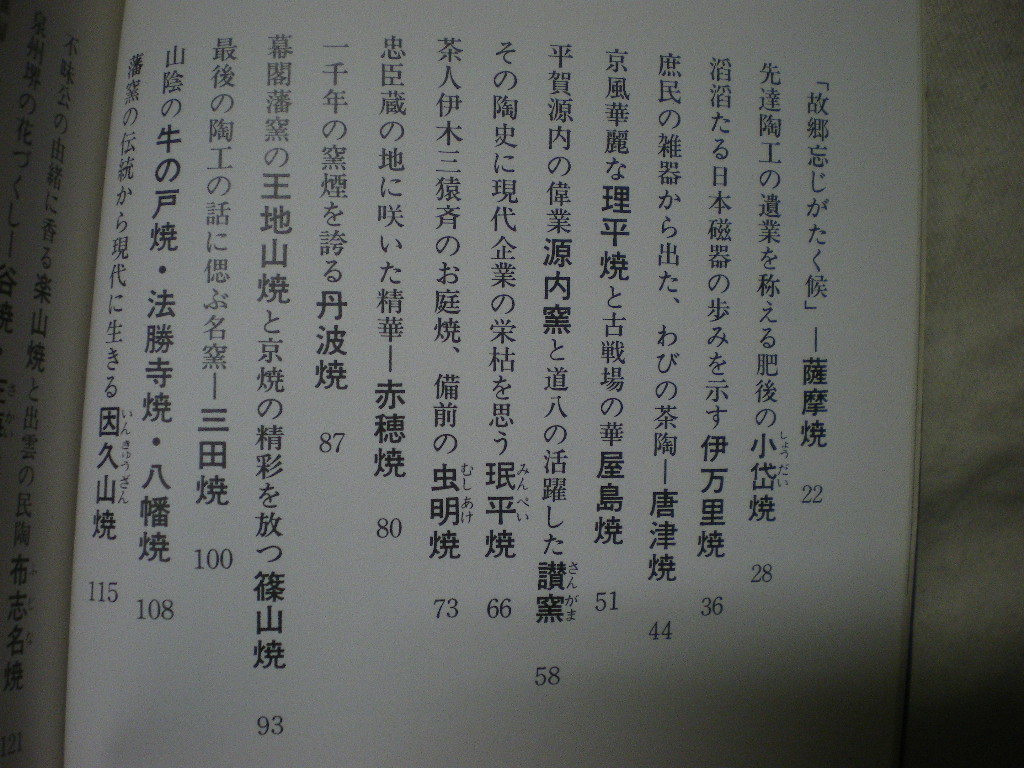 「故郷忘じがたく候」―薩摩焼 22
先達陶工の遺業を称える肥後の小岱焼 28
滔滔たる日本磁器の歩みを示す伊万里焼 36
庶民の雑器から出た、わびの茶陶―唐津焼 44
京風華麗な理平焼と古戦場の華屋島焼 51
平賀源内の偉業源内窯と道八の活躍した讃窯 58
その陶史に現代企業の栄枯を思う珉平焼 66
茶人伊木三猿斉のお庭焼、備前の虫明焼 73
忠臣蔵の地に咲いた精華―赤穂焼 80
一千年の窯煙を誇る丹波焼 87
幕閣藩窯の王地山焼と京焼の精彩を放つ篠山焼 93
最後の陶工の話に偲ぶ名窯―三田焼 100
山陰の牛の戸焼・法勝寺焼・八幡焼 108
藩窯の伝統から現代に生きる因久山焼 115
不昧公の由緒に香る楽山焼と出雲の民陶布志名焼 121
泉州堺の花づくし―谷焼・